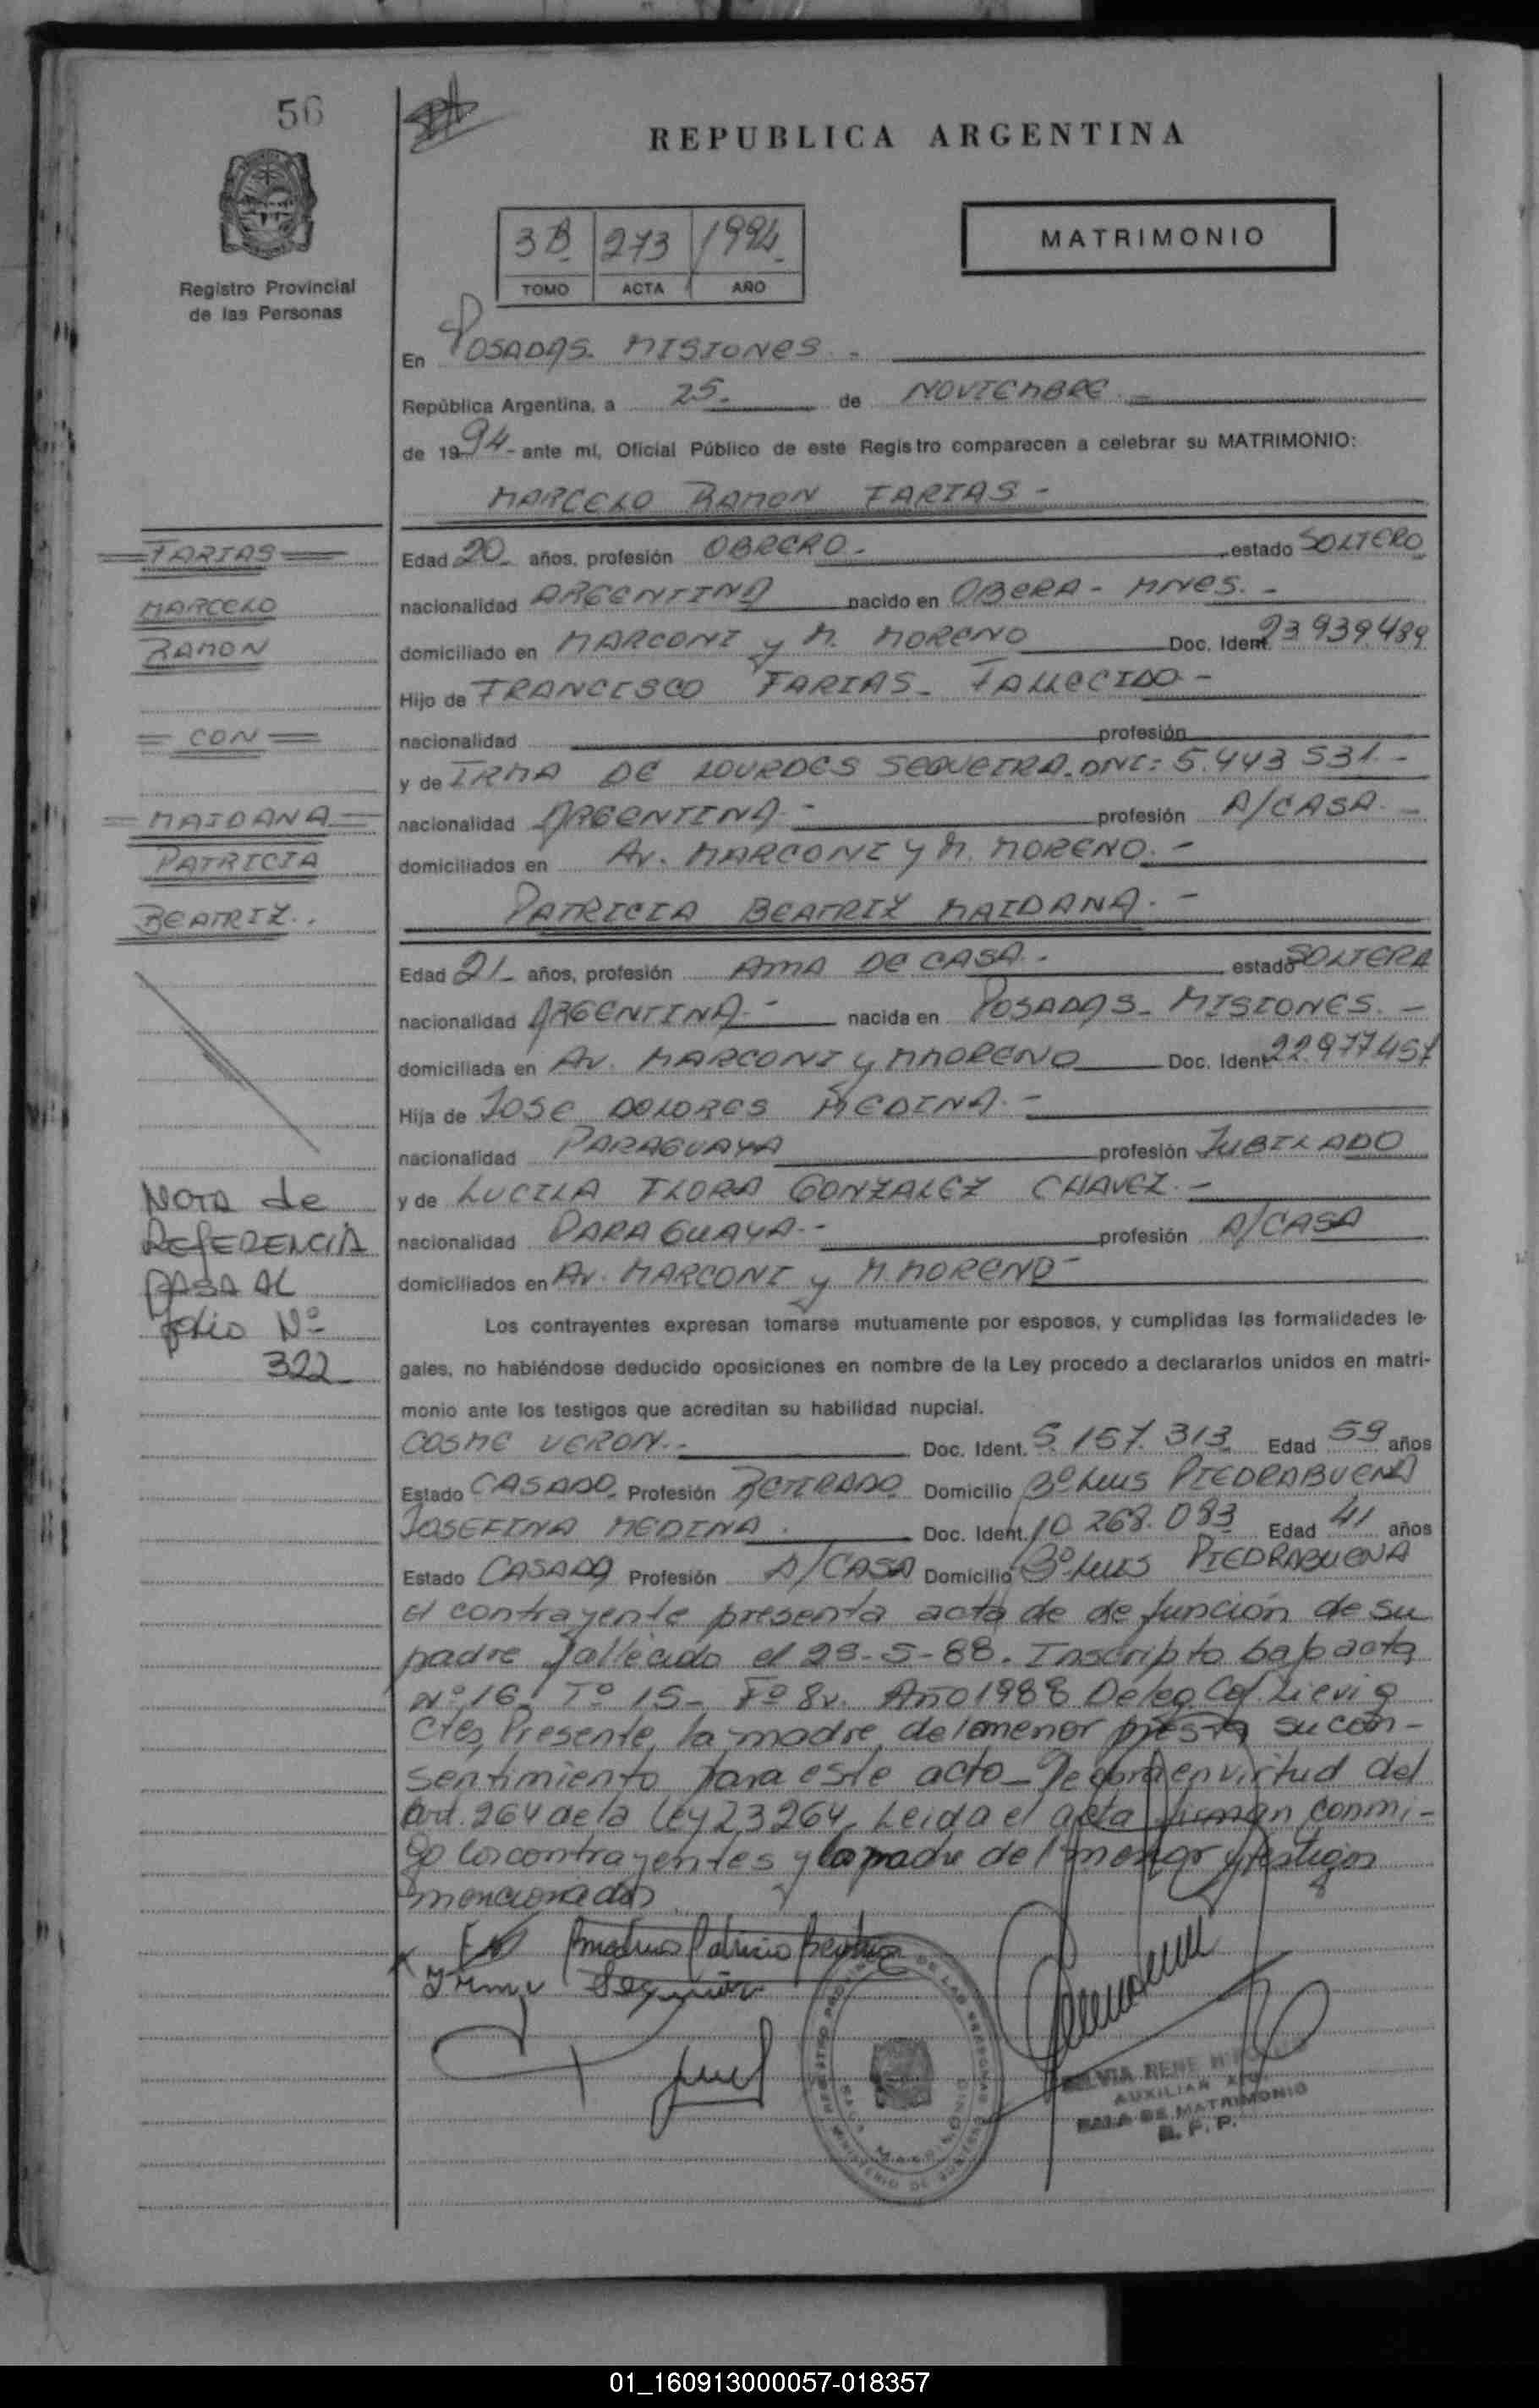 56
REPUBLICA ARGENTINA
3B 273 1994
TOMO ACTA AÑO
MATRIMONIO
Registro Provincial
de las Personas
En POSADAS. MISIONES. -
República Argentina, a 25. de NOVIEMBRE.
de 1994- ante mi, Oficial Público de este Registro comparecen a celebrar su MATRIMONIO:
MARCELO RAMON FARIAS -
FARIAS
MARCELO
RAMON
CON
MAIDANA
PATRICIA
BEATRIZ..
Edad 20- años, profesión OBRERO. estado SOLTERO
nacionalidad ARGENTINA nacido en OBERA - MNES. -
domiciliado en MARCONI y M. MORENO Doc. Ident. 23.939.489
Hijo de FRANCISCO FARIAS - FALLECIDO -
nacionalidad profesión
y de IRMA DE LOURDES SEQUEIRA. DNI: 5.443 531. -
nacionalidad ARGENTINA - profesión A/CASA. -
domiciliados en Av. MARCONI y M. MORENO. -
PATRICIA BEATRIZ MAIDANA. -
Edad 21- años, profesión AMA DE CASA. estado SOLTERA
nacionalidad ARGENTINA - nacida en POSADAS - MISIONES. -
domiciliada en Av. MARCONI y M MORENO Doc. Ident. 22.977457
Hija de JOSE DOLORES MEDINA. -
nacionalidad PARAGUAYA profesión JUBILADO
y de LUCILA FLORA GONZALEZ CHAVEZ. -
nacionalidad PARAGUAYA - profesión A/CASA
domiciliados en Av. MARCONI y M. MORENO -
NOTA de
REFERENCIA
PASA AL
folio Nº
322
Los contrayentes expresan tomarse mutuamente por esposos, y cumplidas las formalidades le-
gales, no habiéndose deducido oposiciones en nombre de la Ley procedo a declararlos unidos en matri-
monio ante los testigos que acreditan su habilidad nupcial.
COSME VERON. Doc. Ident. 5.157.313 Edad 59 años
Estado CASADO Profesión RETIRADO Domicilio Bº Luis PIEDRABUENA
JOSEFINA MEDINA. Doc. Ident. 10.268.093 Edad 41 años
Estado CASADA Profesión A/CASA Domicilio Bº Luis PIEDRABUENA
El contrayente presenta acta de defunción de su
padre fallecido el 29-5-88. Inscripto bajo acta
Nº 16. Tº 15- Fº 8v. Año 1988 Deleg. Cel. Lievig
Ctes, Presente, la madre, del menor presta su con-
sentimiento para este acto - en virtud del
art. 264 de la Ley 23264. Leida el acta firman conmi-
go los contrayentes y la madre del menor y testigos
mencionados
Patricia Beatriz
Irma Sequeira
SILVIA RENE
AUXILIAR
SALA DE MATRIMONIO
R. P. P.
01_160913000057-018357